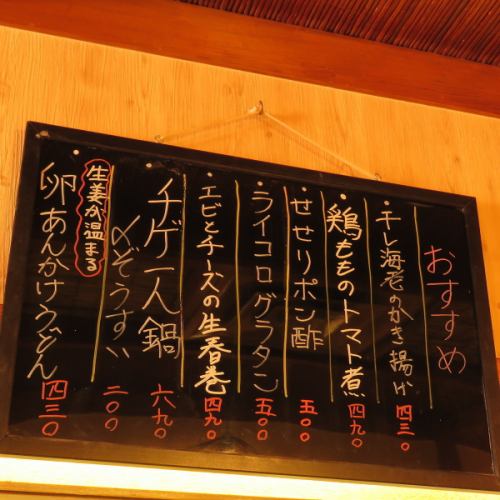 おすすめ
・干し海老のかき揚げ 四三〇
・鶏もものトマト煮 四九〇
・せせりポン酢 五〇〇
・ライコログラタン 五〇〇
・エビとチーズの生春巻 四九〇
・チゲ一人鍋 六九〇
〆ぞうすい 二〇〇
生姜が温まる
・卵あんかけうどん 四三〇